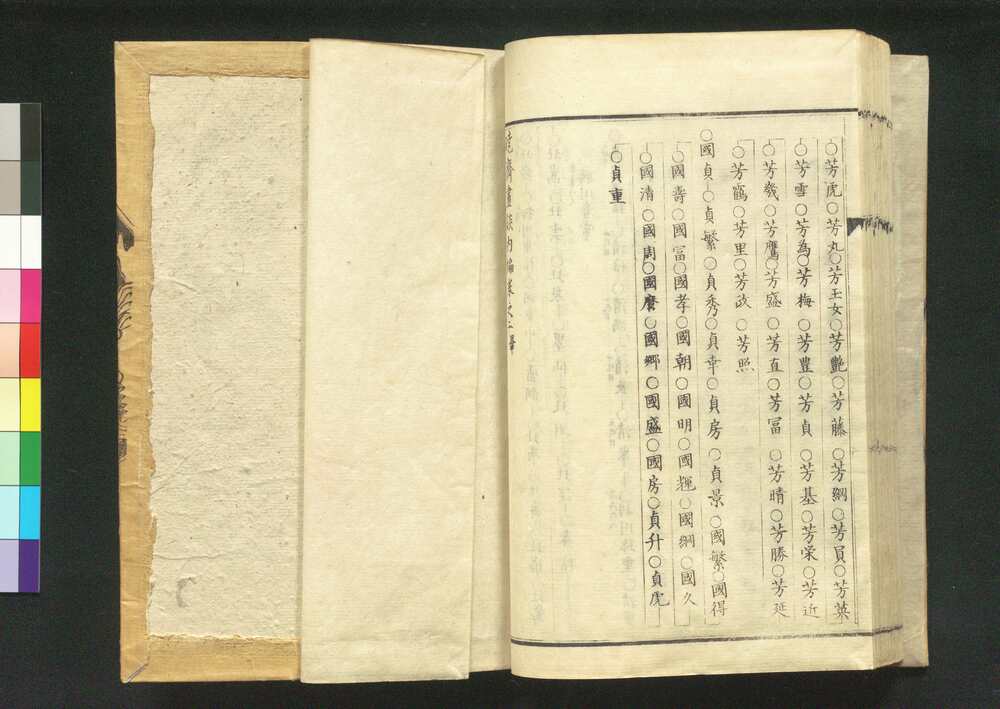 ○芳虎○芳丸○芳玉女○芳艶○芳藤○芳綱○芳員○芳菜
○芳雪○芳為○芳梅○芳豊○芳貞○芳基○芳栄○芳近
○芳幾○芳鷹○芳盛○芳直○芳冨○芳晴○芳勝○芳延
○芳鶴○芳里○芳政○芳照
○國貞○貞繁○貞秀○貞幸○貞房○貞景○國繁○國得
○國壽○國冨○國孝○國朝○國明○國輝○國綱○國久
○國清○國周○國麿○國郷○國盛○國房○貞升○貞虎
○貞重
齋畫談内編